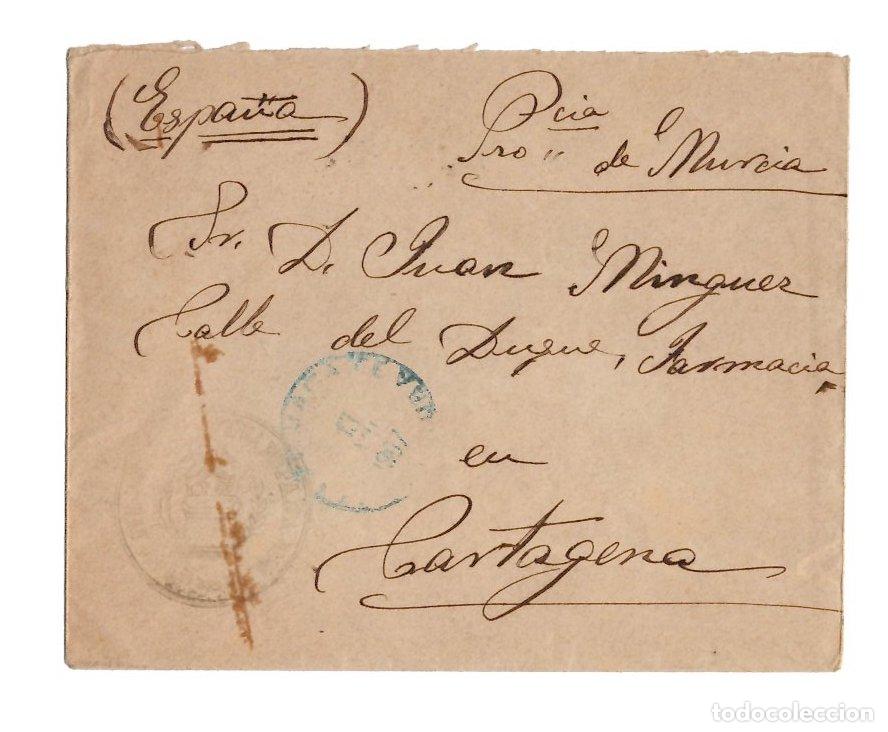 (España)
Pcia
Pro " de Murcia
Sr. D. Juan Minguez
Calle del Duque, Farmacia,
en
Cartagena
todocoleccion